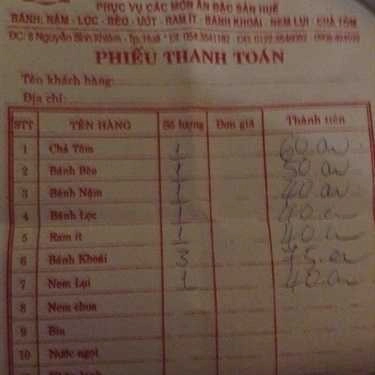 PHỤC VỤ CÁC MÓN ĂN ĐẶC SẢN HUẾ
BÁNH: NẬM - LỌC - BÈO - ƯỚT - RAM ÍT - BÁNH KHOÁI - NEM LỤI - CHẢ TÔM
ĐC: 8 Nguyễn Bỉnh Khiêm - Tp. Huế * ĐT:
PHIẾU THANH TOÁN
Tên khách hàng:
Địa chỉ:
STT TÊN HÀNG Số lượng Đơn giá Thành tiền
1 Chả Tôm 1
2 Bánh Bèo 1
3 Bánh Nậm 1
4 Bánh Lọc 1
5 Ram ít 1
6 Bánh Khoái 3
7 Nem Lụi 1
8 Nem chua
9 Bia
10 Nước ngọt